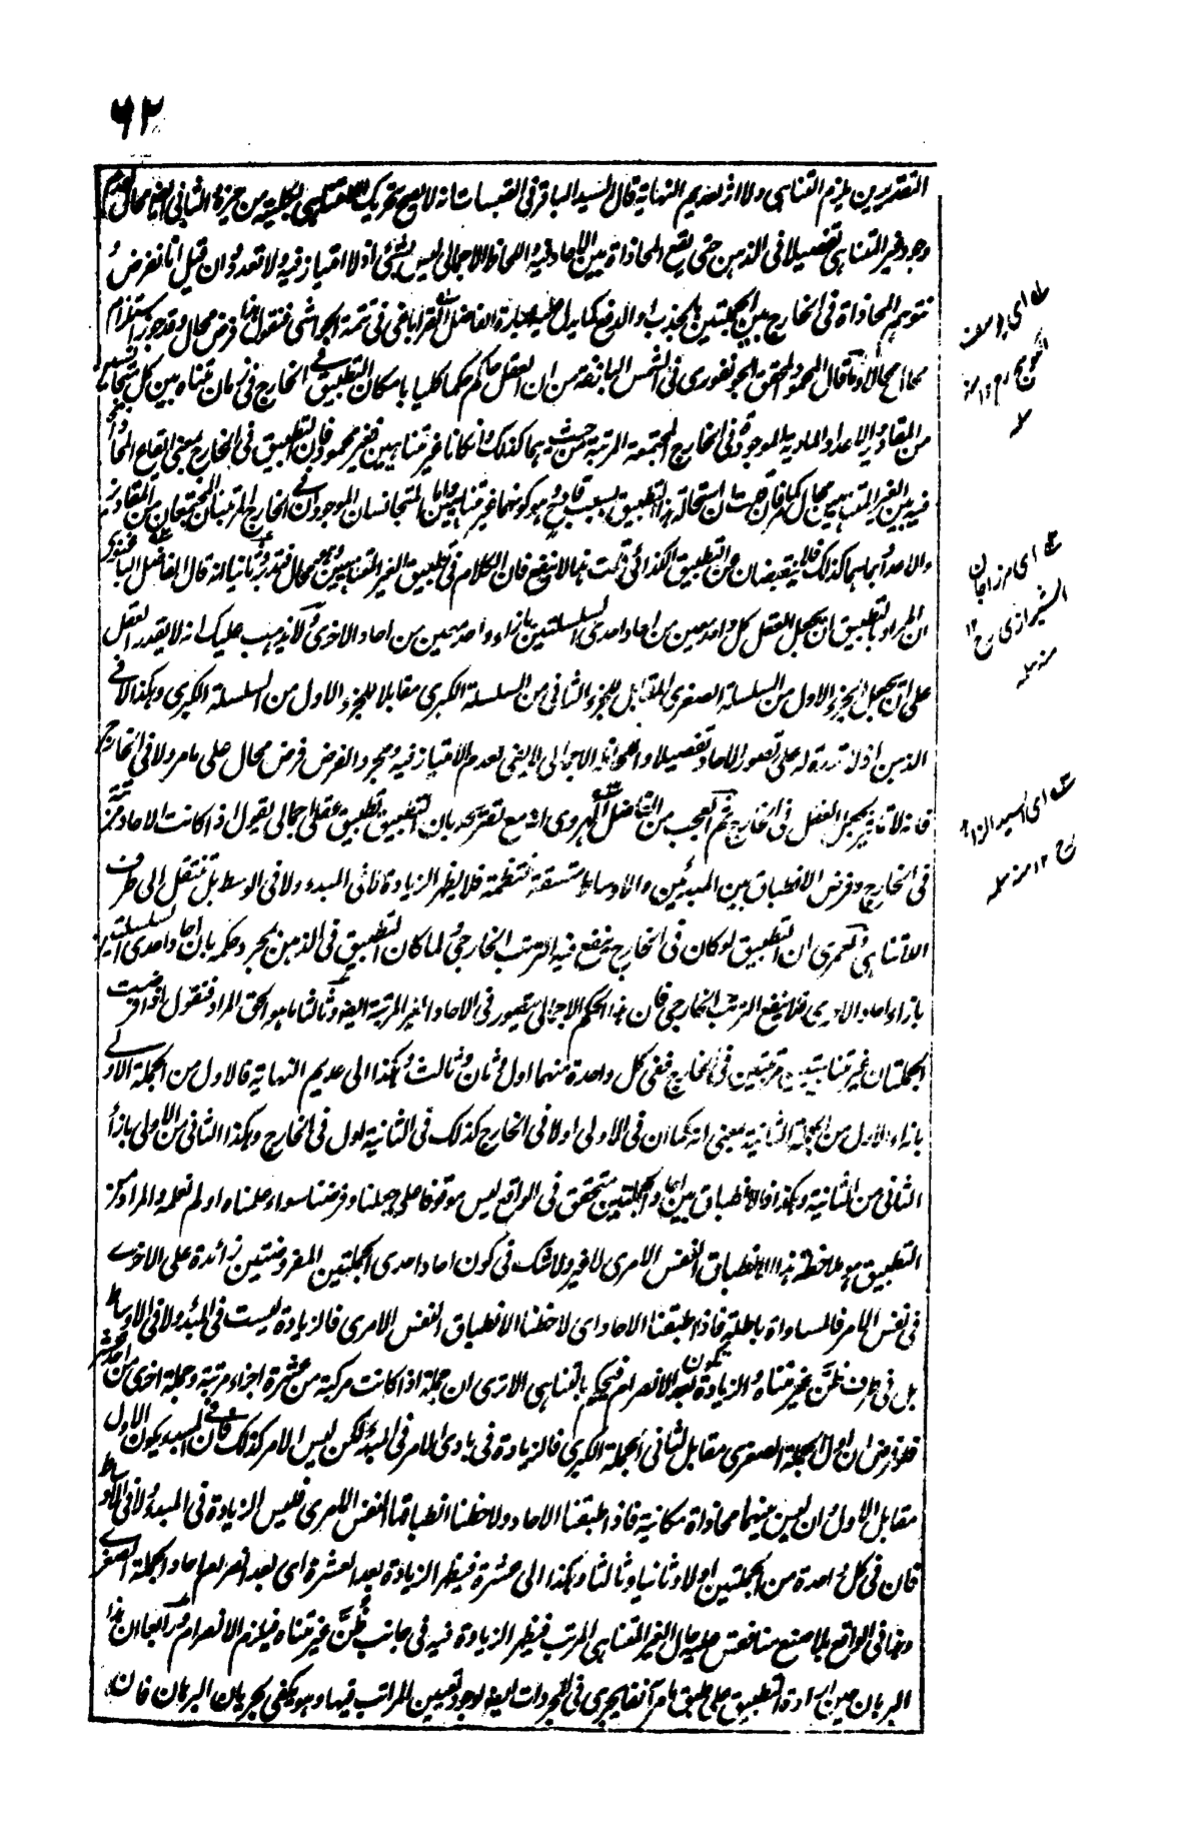 ٦٢
التقديرين يلزم التناهى ولا اثر لعديم النهاية قال السيد الباقر فى القبسات انه لا يصح تحريك اللامتناهى بكليته من حيزه الثانى ايضا محال لعدم
وجود غير المتناهى تفصيلا فى الذهن حتى يقع المحاذاة بين الآحاد فيه واللحاظ الاجمالى ليس بشئ اذ لا امتياز فيه ولا تعدد وان قيل انا نفرض
نتوهم المحاذاة فى الخارج بين الجملتين بالجذب او الدفع كما يدل عليه عبارة الفاضل القراباغى فى تتمة الحواشى فنقول هذا فرض محال وقد جوزا استلزام
محال محالا وما قال المحمود المحقق الجونفورى فى الشمس البازغة من ان العقل حاكم حكما كليا بامكان التطبيق فى الخارج فى زمان متناه بين كل متجانسين
من المقادير او الاعداد المادية الموجودة فى الخارج المجتمعة المرتبة من حيث هما كذلك وان كانا غير متناهيين فغير محمود فان التطبيق فى الخارج بمعنى ايقاع المحاذاة
فيه بين الغير المتناهيين محال كما عرفت ان استحالة هذا التطبيق بسبب قادح وهو كونهما غير متناهيين واما المتجانسان الموجودان فى الخارج المرتبان المجتمعان من المقادير
والاعداد بما هما كذلك فلا ينقبضان عن التطبيق الكذائى قلت هذا لا ينفع فان الكلام فى تطبيق الغير المتناهيين وهو محال فتدبر وثانيا انه قال الفاضل الباغنوى
ان المراد بالتطبيق ان يجعل العقل كل واحد معين من آحاد احدى السلسلتين بازاء واحد معين من آحاد الاخرى ولا يذهب عليك انه لا يقدر العقل
على ان يجعل الجزء الاول من السلسلة الصغرى المقابل للجزء الثانى من السلسلة الكبرى مقابلا للجزء الاول من السلسلة الكبرى وهكذا لا فى
الذهن اذ لا قدرة له على تصور الآحاد تفصيلا واللحاظ الاجمالى لا يغنى لعدم الامتياز فيه ومجرد الفرض فرض محال على ما مر ولا فى الخارج
فانه لا تأثير لجعل العقل فى الخارج ثم العجب من الفاضل الهروى انه مع تقريحه بان التطبيق تطبيق عقلى اجمالى يقول اذا كانت الآحاد مترتبة
فى الخارج وفرض الانطباق بين المبدئين والاوساط متسقة منتظمة فلا يظهر الزيادة لا فى المبدء ولا فى الوسط بل تنتقل الى طرف
اللاتناهى ولعمرى ان التطبيق لو كان فى الخارج ينفع فيه الترتب الخارجى ولما كان التطبيق فى الذهن بمجرد حكمه بان آحاد احدى السلسلتين
بازاء آحاد الاخرى فما ينفع الترتب الخارجى فان هذا الحكم الاجمالى يتصور فى الآحاد الغير المرتبة ايضا وثالثا ما هو الحق المراد فنقول اذا فرضت
الجملتان غير متناهيتين مترتبتين فى الخارج ففى كل واحدة منهما اول وثان وثالث وهكذا الى عديم النهاية فالاول من الجملة الاولى
بازاء الاول من الجملة الثانية بمعنى انه كما ان فى الاولى اولا فى الخارج كذلك فى الثانية اول فى الخارج وهكذا الثانى من الاولى بازاء
الثانى من الثانية وهكذا فالانطباق بين آحاد الجملتين متحقق فى الواقع ليس موقوفا على جعلنا وفرضنا سواء علمناه او لم نعلمه والمراد من
التطبيق هو ملاحظة هذا الانطباق النفس الامرى لا غير ولا شك فى كون آحاد احدى الجملتين المفروضتين زائدة على الاخرى
فى نفس الامر فالمساواة باطلة فاذا طبقنا الآحاد اى لاحظنا الانطباق النفس الامرى فالزيادة ليست فى المبدء ولا فى الاوساط
بل فى طرف ظن غير متناه والزيادة تكون بعد الانصرام فيحكم بالتناهى الا ترى ان جملة اذا كانت مركبة من عشرة اجزاء مرتبة وجملة اخرى من احد عشر
فلو فرض ان اول الجملة الصغرى مقابل لثانى الجملة الكبرى فالزيادة فى بادى الامر فى المبدء لكن ليس الامر كذلك فان فى المبدء يكون الاول
مقابل الاول وان ليس بينهما محاذاة مكانية فاذا طبقنا الآحاد ولاحظنا انطباقها النفس الامرى فليس الزيادة فى المبدء ولا فى الاوساط
فان فى كل واحدة من الجملتين اولا وثانيا وثالثا وهكذا الى عشرة فيظهر الزيادة بعد العشرة اى بعد انصرام آحاد الجملة الصغرى
وهذا فى الواقع بلا صنع منا فقس عليه حال الغير المتناهى المرتب فيظهر الزيادة فيه فى جانب ظن غير متناه فيلزم الانصرام ورابعا ان هذا
البرهان حين ارادة التطبيق على طبق ما مر آنفا يجرى فى المجردات ايضا لوجود تعيين المراتب فيها وهو يكفى لجريان البرهان فان
اى يوسف
الكوسج رح ١٢ منه
اى مرزاجان
الشيرازى رح ١٢
منه
اى السيد الزاهد
رح ١٢ منه